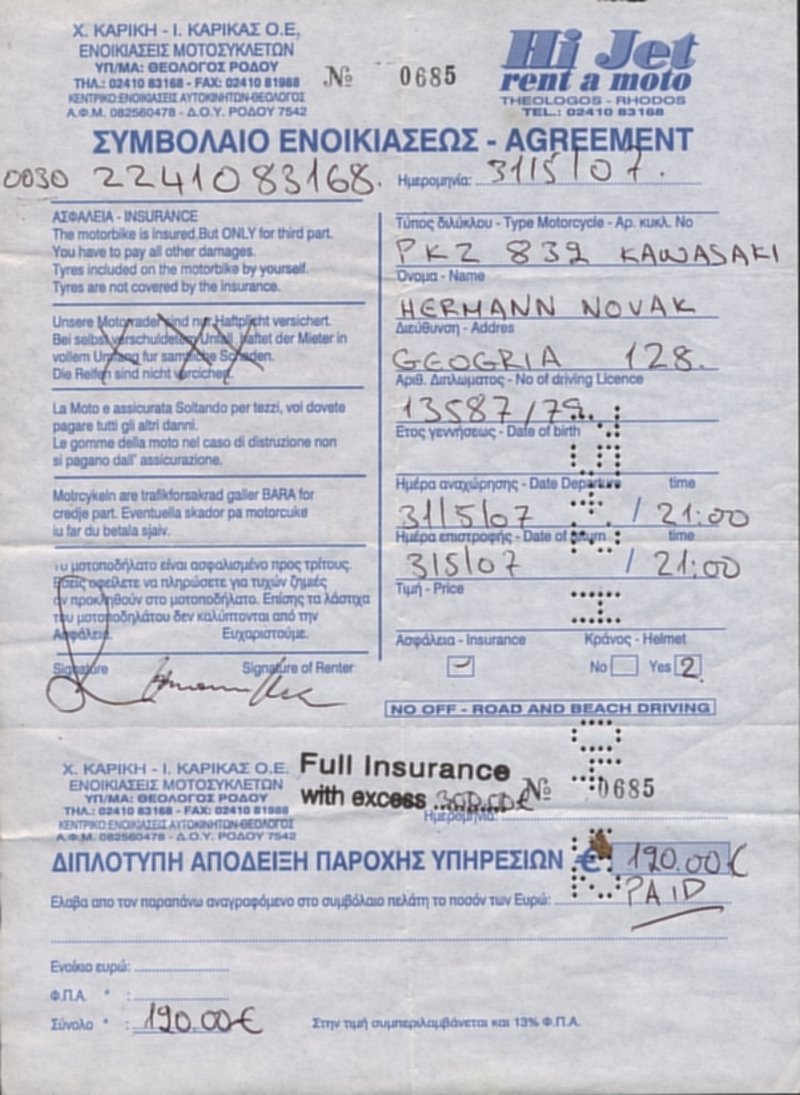 Χ. ΚΑΡΙΚΗ - Ι. ΚΑΡΙΚΑΣ Ο.Ε,
ΕΝΟΙΚΙΑΣΕΙΣ ΜΟΤΟΣΥΚΛΕΤΩΝ
ΥΠ/ΜΑ: ΘΕΟΛΟΓΟΣ ΡΟΔΟΥ
ΤΗΛ.: 02410 83168 - FAX: 02410 81988
ΚΕΝΤΡΙΚΟ: ΕΝΟΙΚΙΑΣΕΙΣ ΑΥΤΟΚΙΝΗΤΩΝ-ΘΕΟΛΟΓΟΣ
Α.Φ.Μ. 082560478 - Δ.Ο.Υ. ΡΟΔΟΥ 7542
№ 0685
Hi Jet
rent a moto
THEOLOGOS - RHODOS
TEL.: 02410 83168
ΣΥΜΒΟΛΑΙΟ ΕΝΟΙΚΙΑΣΕΩΣ - AGREEMENT
0030 22410 83168.
Ημερομηνία: 31/5/07.
ΑΣΦΑΛΕΙΑ - INSURANCE
The motorbike is insured.But ONLY for third part.
You have to pay all other damages.
Tyres included on the motorbike by yourself.
Tyres are not covered by the insurance.
Unsere Motorrader sind nur Haftplicht versichert.
Bei selbst verschuldeten Unfall haftet der Mieter in
vollem Umfang fur samtliche Schaden.
Die Reifen sind nicht versichert.
La Moto e assicurata Soltando per tezzi, voi dovete
pagare tutti gli altri danni.
Le gomme della moto nel caso di distruzione non
si pagano dall' assicurazione.
Motrcykeln are trafikforsakrad galler BARA for
credje part. Eventuella skador pa motorcuke
iu far du betala sjaiv.
Το μοτοποδήλατο είναι ασφαλισμένο προς τρίτους.
Εσείς οφείλετε να πληρώσετε για τυχών ζημιές
αν προκληθούν στο μοτοποδήλατο. Επίσης τα λάστιχα
του μοτοποδηλάτου δεν καλύπτονται από την
Ασφάλεια. Ευχαριστούμε.
Signature Signature of Renter
Τύπος διλύκλου - Type Motorcycle - Αρ. κυκλ. No
PKZ 832 KAWASAKI
Όνομα - Name
HERMANN NOVAK
Διεύθυνση - Addres
GEOGRIA 128.
Αριθ. Διπλωματος - No of driving Licence
13587/79.
Ετος γεννήσεως - Date of birth
Ημέρα αναχώρησης - Date Departure time
31/5/07 / 21:00
Ημέρα επιστροφής - Date of return time
3/5/07 / 21:00
Τιμή - Price
Ασφάλεια - Insurance Κράνος - Helmet
No Yes 2.
NO OFF - ROAD AND BEACH DRIVING
Χ. ΚΑΡΙΚΗ - Ι. ΚΑΡΙΚΑΣ Ο.Ε.
ΕΝΟΙΚΙΑΣΕΙΣ ΜΟΤΟΣΥΚΛΕΤΩΝ
ΥΠ/ΜΑ: ΘΕΟΛΟΓΟΣ ΡΟΔΟΥ
ΤΗΛ.: 02410 83168 - FAX: 02410 81988
ΚΕΝΤΡΙΚΟ: ΕΝΟΙΚΙΑΣΕΙΣ ΑΥΤΟΚΙΝΗΤΩΝ-ΘΕΟΛΟΓΟΣ
Α.Φ.Μ. 082560478 - Δ.Ο.Υ. ΡΟΔΟΥ 7542
Full Insurance
with excess 300.00€
№ 0685
Ημερομηνία:
ΔΙΠΛΟΤΥΠΗ ΑΠΟΔΕΙΞΗ ΠΑΡΟΧΗΣ ΥΠΗΡΕΣΙΩΝ € 190.00€
Ελαβα απο τον παραπάνω αναγραφόμενο στο συμβόλαιο πελάτη το ποσόν των Ευρώ: PAID
Ενοίκιο ευρώ:
Φ.Π.Α. " :
Σύνολο " : 190.00€
Στην τιμή συμπεριλαμβάνεται και 13% Φ.Π.Α.